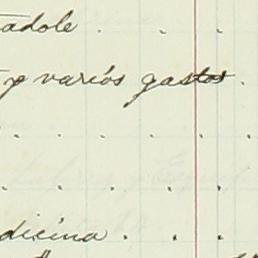 adole . . .
y varios gastos .
. . . . . .
. . . . .
dicina . . .